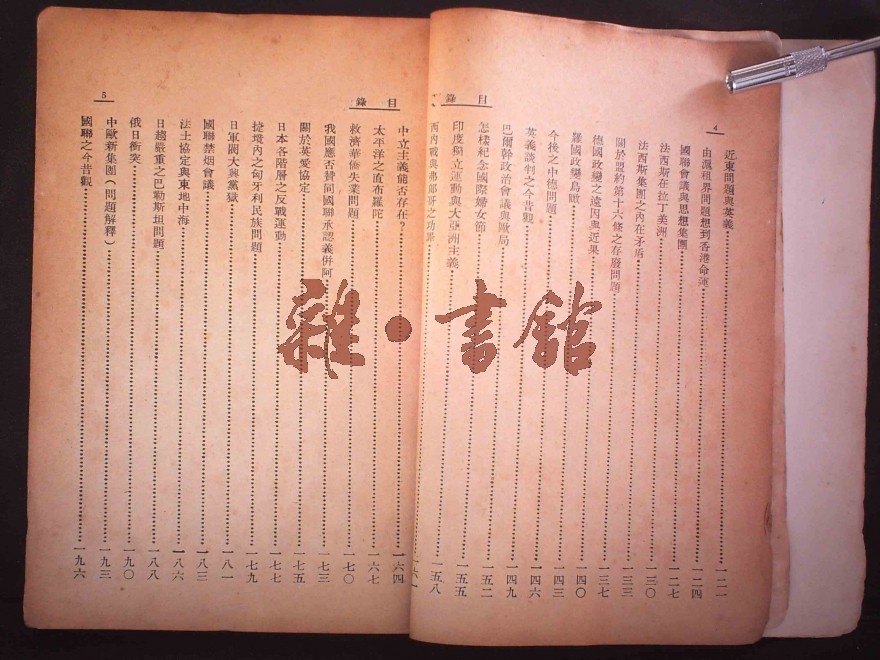 目錄
4
近東問題與英義…一二一
由滬租界問題想到香港命運…一二四
國聯會議與思想集團…一二七
法西斯在拉丁美洲…一三〇
法西斯集團之內在矛盾…一三三
關於盟約第十六條之存廢問題…一三七
德國政變之遠因與近果…一四〇
羅國政變鳥瞰…一四三
今後之中德問題…一四六
英義談判之今昔觀…一四九
巴爾幹政治會議與歐局…一五二
怎樣紀念國際婦女節…一五五
印度獨立運動與大亞洲主義…一五八
西內戰與弗郎哥之功罪…一六一
目錄
5
中立主義能否存在？…一六四
太平洋之直布羅陀…一六七
救濟華僑失業問題…一七〇
我國應否贊同國聯承認義併阿…一七三
關於英愛協定…一七五
日本各階層之反戰運動…一七七
捷境內之匈牙利民族問題…一七九
日軍閥大興黨獄…一八一
國聯禁烟會議…一八三
法土協定與東地中海…一八六
日趨嚴重之巴勒斯坦問題…一八八
俄日衝突…一九〇
中歐新集團（問題解釋）…一九三
國聯之今昔觀…一九六
雜·書館